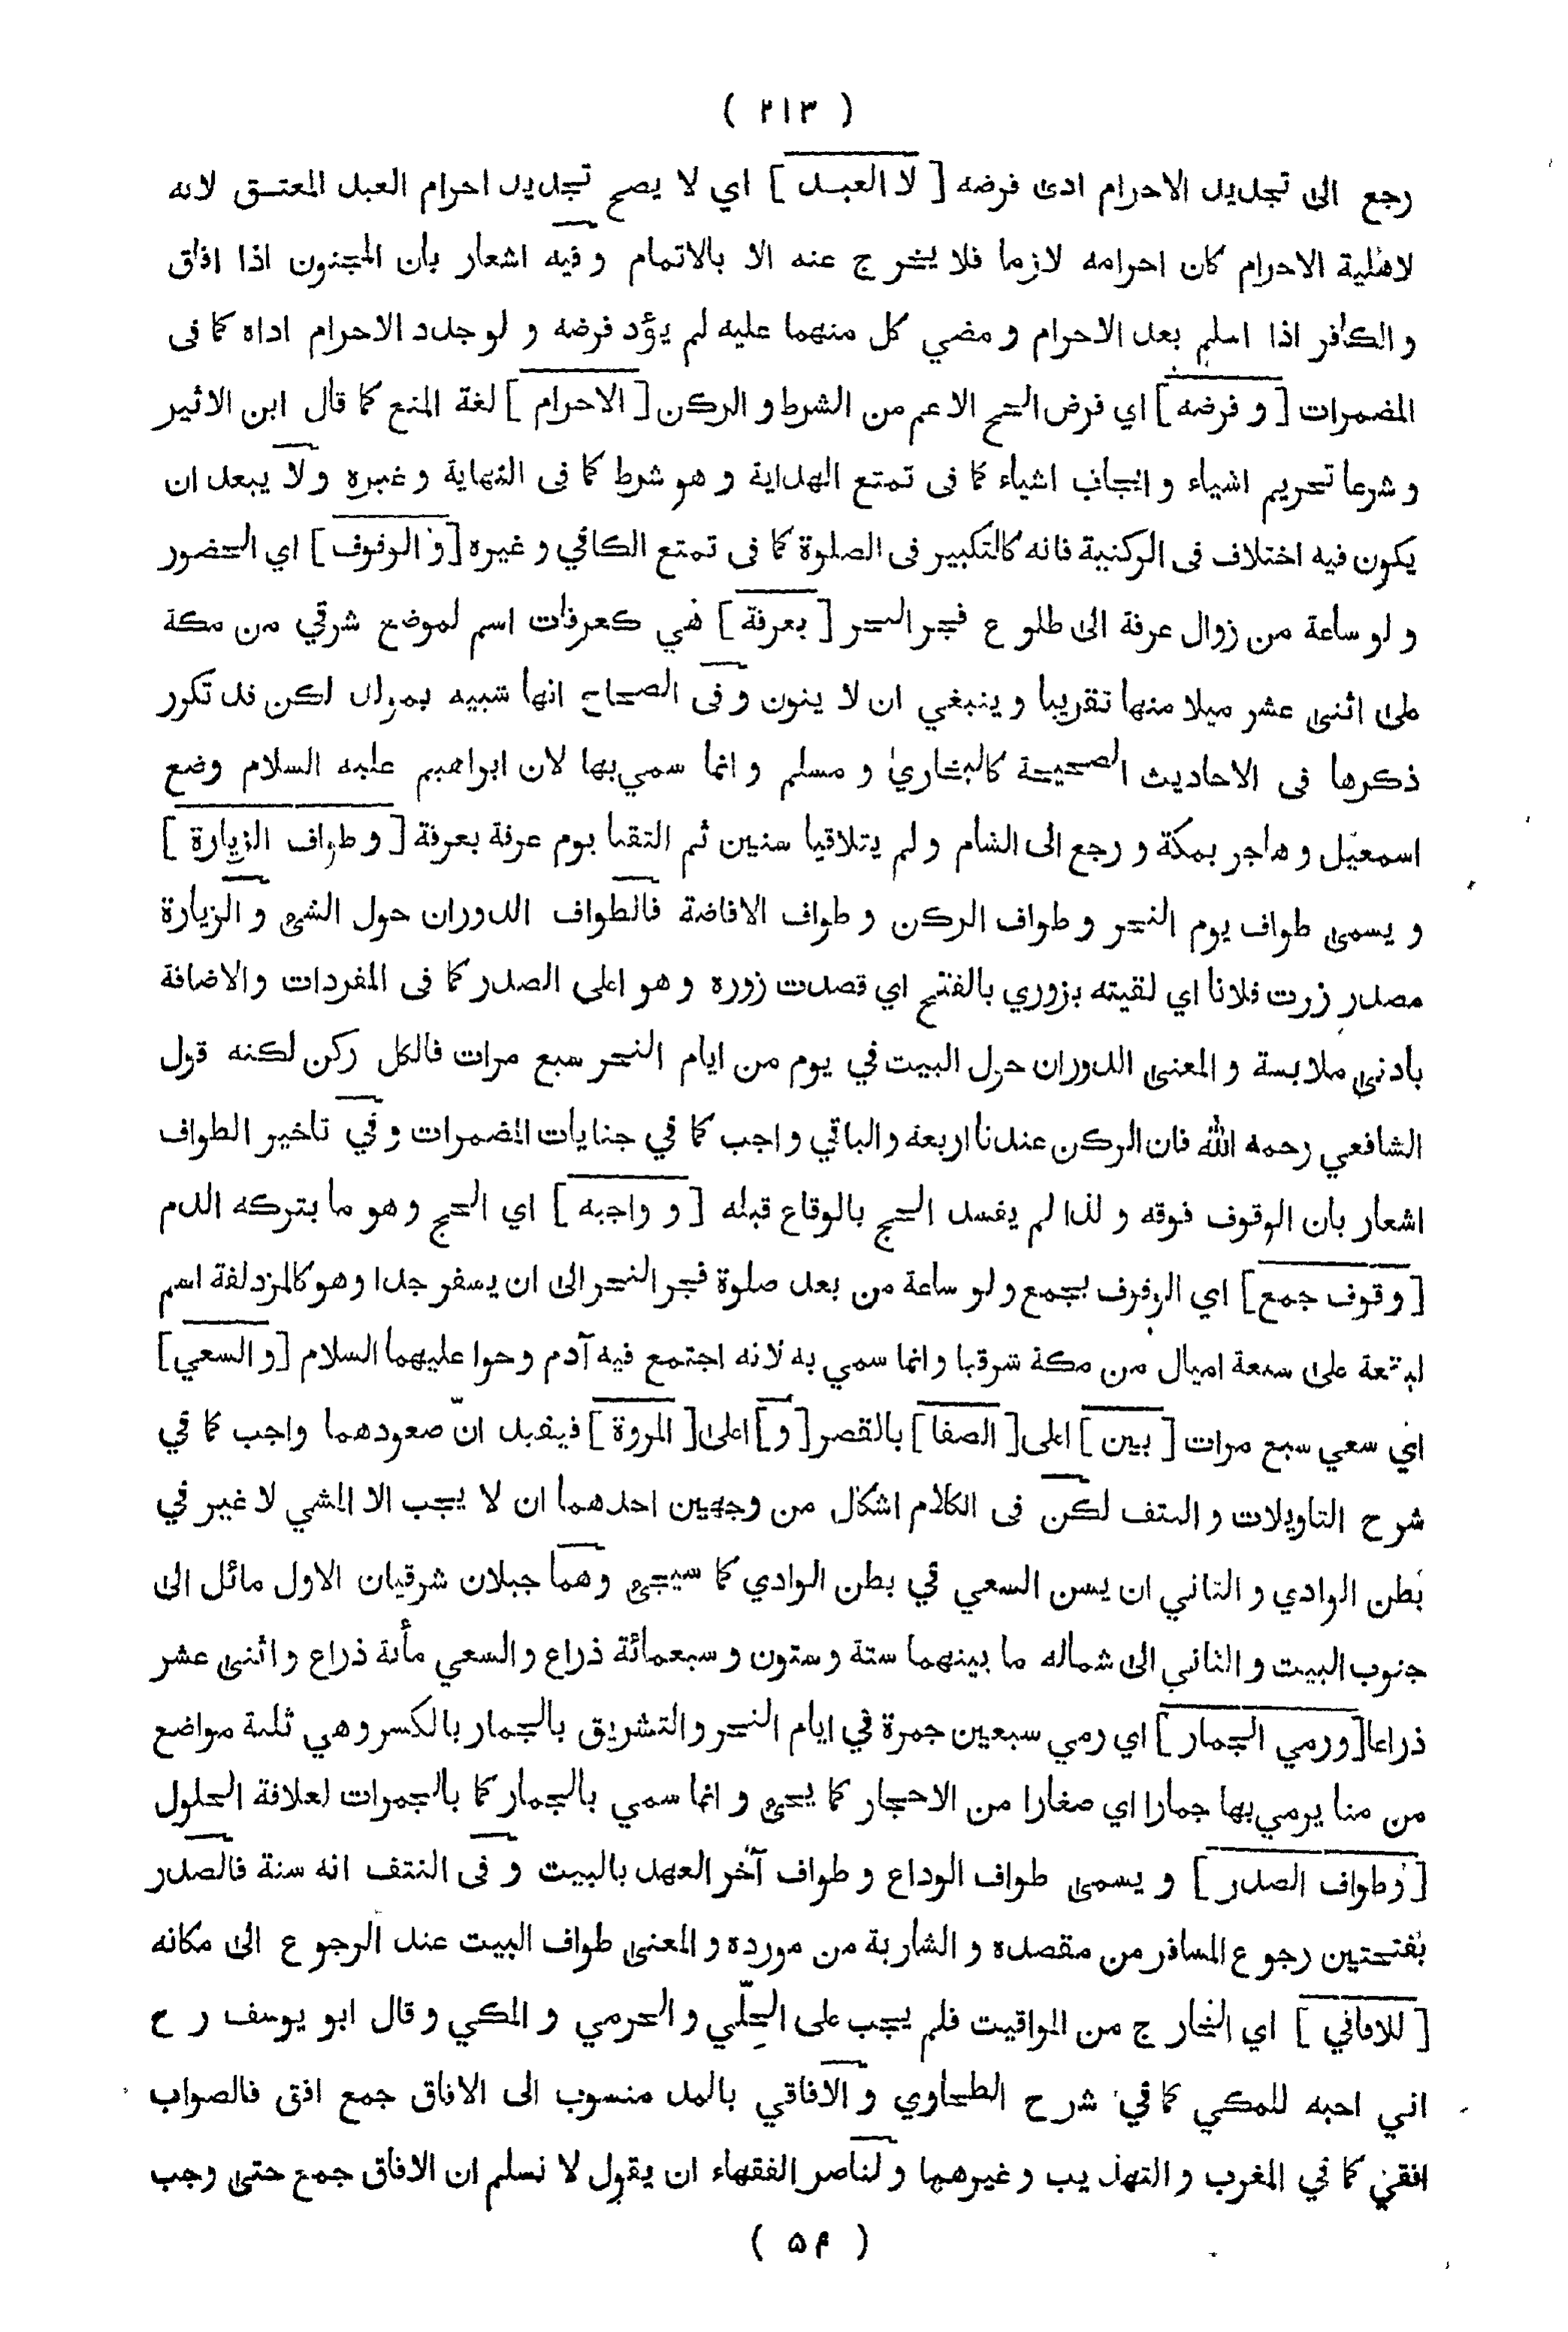 ( ٢١٣ )
رجع الى تجديد الاحرام ادى فرضه [ لا العبد ] اي لا يصح تجديد احرام العبد المعتق لانه
لاهلية الاحرام كان احرامه لازما فلا يخرج عنه الا بالاتمام و فيه اشعار بان المجنون اذا افاق
و الكافر اذا اسلم بعد الاحرام و مضي كل منهما عليه لم يؤد فرضه و لو جدد الاحرام اداه كما فى
المضمرات [ و فرضه ] اي فرض الحج الاعم من الشرط و الركن [ الاحرام ] لغة المنع كما قال ابن الاثير
و شرعا تحريم اشياء و ايجاب اشياء كما فى تمتع الهداية و هو شرط كما فى النهاية و غيره و لا يبعد ان
يكون فيه اختلاف فى الركنية فانه كالتكبير فى الصلوة كما فى تمتع الكافي و غيره [ و الوقوف ] اي الحضور
و لو ساعة من زوال عرفة الى طلوع فجر النحر [ بعرفة ] هي كعرفات اسم لموضع شرقي من مكة
على اثنى عشر ميلا منها تقريبا و ينبغي ان لا ينون و فى الصحاح انها شبيه بمولد لكن قد تكرر
ذكرها فى الاحاديث الصحيحة كالبخاري و مسلم و انما سمي بها لان ابراهيم عليه السلام وضع
اسمعيل و هاجر بمكة و رجع الى الشام و لم يتلاقيا سنين ثم التقيا يوم عرفة بعرفة [ و طواف الزيارة ]
و يسمى طواف يوم النحر و طواف الركن و طواف الافاضة فالطواف الدوران حول الشئ و الزيارة
مصدر زرت فلانا اي لقيته بزوري بالفتح اي قصدت زوره و هو اعلى الصدر كما فى المفردات والاضافة
بادنى ملابسة و المعنى الدوران حول البيت في يوم من ايام النحر سبع مرات فالكل ركن لكنه قول
الشافعي رحمه الله فان الركن عندنا اربعة والباقي واجب كما في جنايات المضمرات و في تاخير الطواف
اشعار بان الوقوف فوقه و لذا لم يفسد الحج بالوقاع قبله [ و واجبه ] اي الحج و هو ما بتركه الدم
[ وقوف جمع ] اي الوقوف بجمع و لو ساعة من بعد صلوة فجر النحر الى ان يسفر جدا وهو كالمزدلفة اسم
لبقعة على سبعة اميال من مكة شرقيا و انما سمي به لانه اجتمع فيه آدم و حوا عليهما السلام [ و السعي ]
اي سعي سبع مرات [ بين ] اعلى [ الصفا ] بالقصر [ و ] اعلى [ المروة ] فيفيد انّ صعودهما واجب كما في
شرح التاويلات و النتف لكن فى الكلام اشكال من وجهين احدهما ان لا يجب الا المشي لا غير في
بطن الوادي و الثاني ان يسن السعي في بطن الوادي كما سيجئ و هما جبلان شرقيان الاول مائل الى
جنوب البيت و الثاني الى شماله ما بينهما ستة و ستون و سبعمائة ذراع و السعي مأئة ذراع و اثنى عشر
ذراعا [ ورمي الجمار ] اي رمي سبعين جمرة في ايام النحر والتشريق بالجمار بالكسر وهي ثلثة مواضع
من منا يرمي بها جمارا اي صغارا من الاحجار كما يجئ و انما سمي بالجمار كما بالجمرات لعلاقة الحلول
[ وطواف الصدر ] و يسمى طواف الوداع و طواف آخر العهد بالبيت و فى النتف انه سنة فالصدر
بفتحتين رجوع المسافر من مقصده و الشاربة من مورده و المعنى طواف البيت عند الرجوع الى مكانه
[ للافاقي ] اي الخارج من المواقيت فلم يجب على الحِلّي و الحرمي و المكي و قال ابو يوسف رح
اني احبه للمكي كما في شرح الطحاوي و الآفاقي بالمد منسوب الى الافاق جمع افق فالصواب
افقي كما في المغرب و التهذيب و غيرهما و لناصر الفقهاء ان يقول لا نسلم ان الافاق جمع حتى وجب
( ٥۴ )